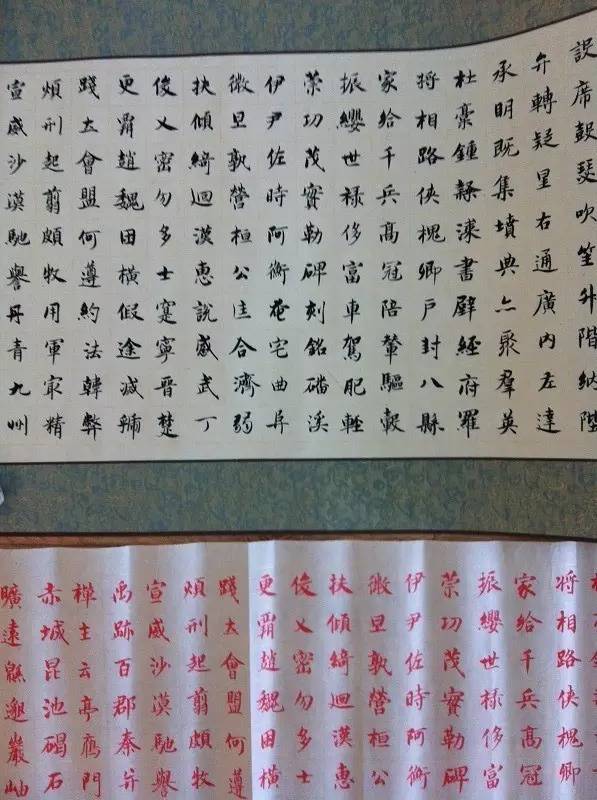 設席鼓瑟吹笙升階納陛
弁轉疑星右通廣內左達
承明既集墳典亦聚羣英
杜稾鍾隸漆書壁經府羅
將相路俠槐卿戶封八縣
家給千兵高冠陪輦驅轂
振纓世祿侈富車駕肥輕
榮功茂實勒碑刻銘磻溪
伊尹佐時阿衡奄宅曲阜
微旦孰營桓公匡合濟弱
扶傾綺迴漢惠說感武丁
俊乂密勿多士寔寧晉楚
更霸趙魏困橫假途滅虢
踐土會盟何遵約法韓弊
煩刑起翦頗牧用軍最精
宣威沙漠馳譽丹青九州
將相路俠槐卿
家給千兵高冠
振纓世祿侈富
榮功茂實勒碑
伊尹佐時阿衡
微旦孰營桓公
扶傾綺迴漢惠
俊乂密勿多士
更霸趙魏困橫
踐土會盟何遵
煩刑起翦頗牧
宣威沙漠馳譽
禹跡百郡秦并
禪主云亭雁門
赤城昆池碣石
曠遠緜邈巖岫